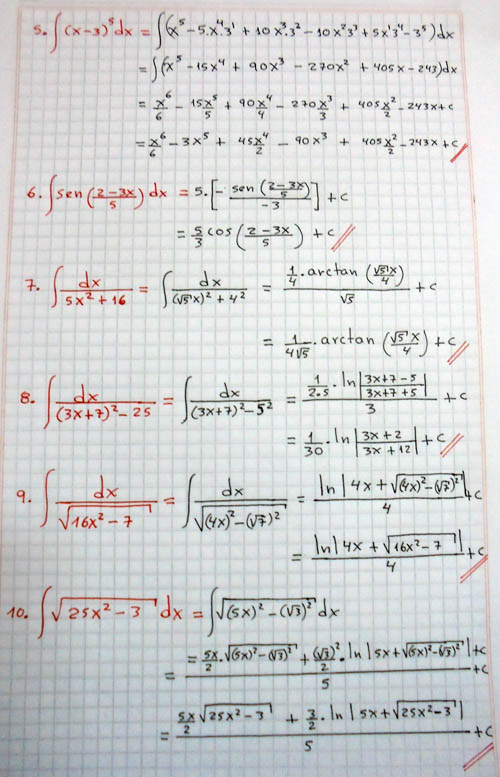 5. ∫(x-3)⁵dx = ∫(x⁵ - 5.x⁴.3¹ + 10x³.3² - 10x²3³ + 5x¹3⁴ - 3⁵)dx
= ∫(x⁵ - 15x⁴ + 90x³ - 270x² + 405x - 243)dx
= x⁶/6 - 15x⁵/5 + 90x⁴/4 - 270x³/3 + 405x²/2 - 243x + c
= x⁶/6 - 3x⁵ + 45x⁴/2 - 90x³ + 405x²/2 - 243x + c //
6. ∫sen((2-3x)/5) dx = 5.[- sen((2-3x)/5)/-3] + c
= 5/3 cos((2-3x)/5) + c //
7. ∫dx/(5x²+16) = ∫dx/((√5x)²+4²) = (1/4 . arctan(√5x/4))/√5 + c
= 1/(4√5) . arctan(√5x/4) + c //
8. ∫dx/((3x+7)²-25) = ∫dx/((3x+7)²-5²) = (1/(2.5) . ln|(3x+7-5)/(3x+7+5)|)/3 + c
= 1/30 . ln|(3x+2)/(3x+12)| + c //
9. ∫dx/√(16x²-7) = ∫dx/√((4x)²-(√7)²) = ln|4x+√((4x)²-(√7)²)|/4 + c
= ln|4x+√(16x²-7)|/4 + c //
10. ∫√(25x²-3) dx = ∫√((5x)²-(√3)²) dx
= (= 5x/2 . √((5x)²-(√3)²) + (√3)²/2 . ln|5x+√((5x)²-(√3)²)| + c)/5 + c
= (5x/2 √(25x²-3) + 3/2 . ln|5x+√(25x²-3)|)/5 + c //